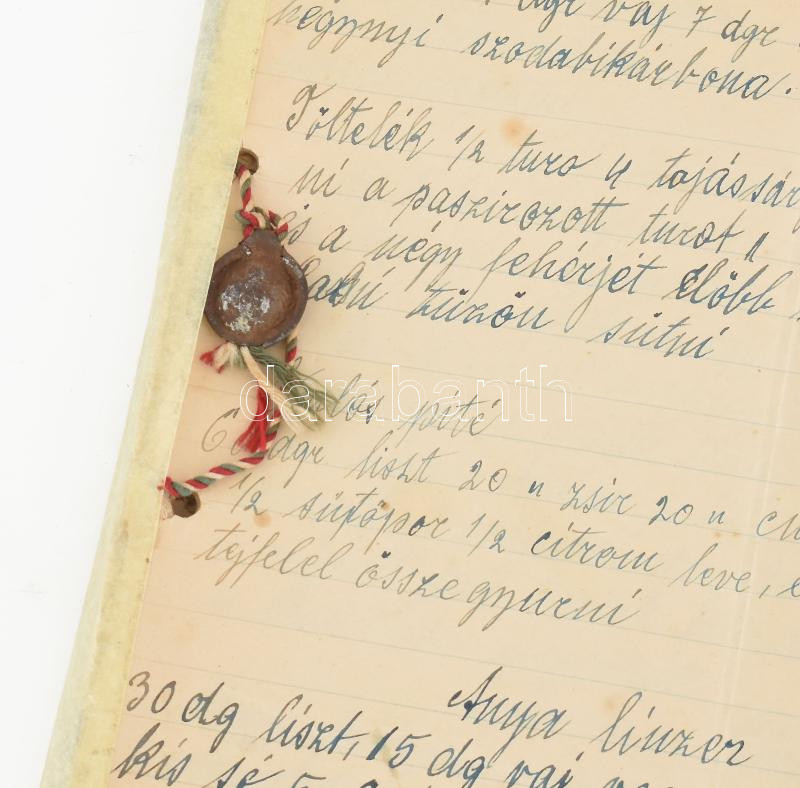 dgr vaj 7 dgr
hegynyi szodabikárbona.
Töltelék 1/2 turo 4 tojássár
ni a paszirozott turot "
és a négy fehérjét előbb
tüzön sütni
lós pité
60 dgr liszt 20 " zsir 20 "
1/2 sütőpor 1/2 citrom leve,
tejfelel összegyurni
Anya linzer
30 dg liszt, 15 dg vaj
kis só 5
darabanth